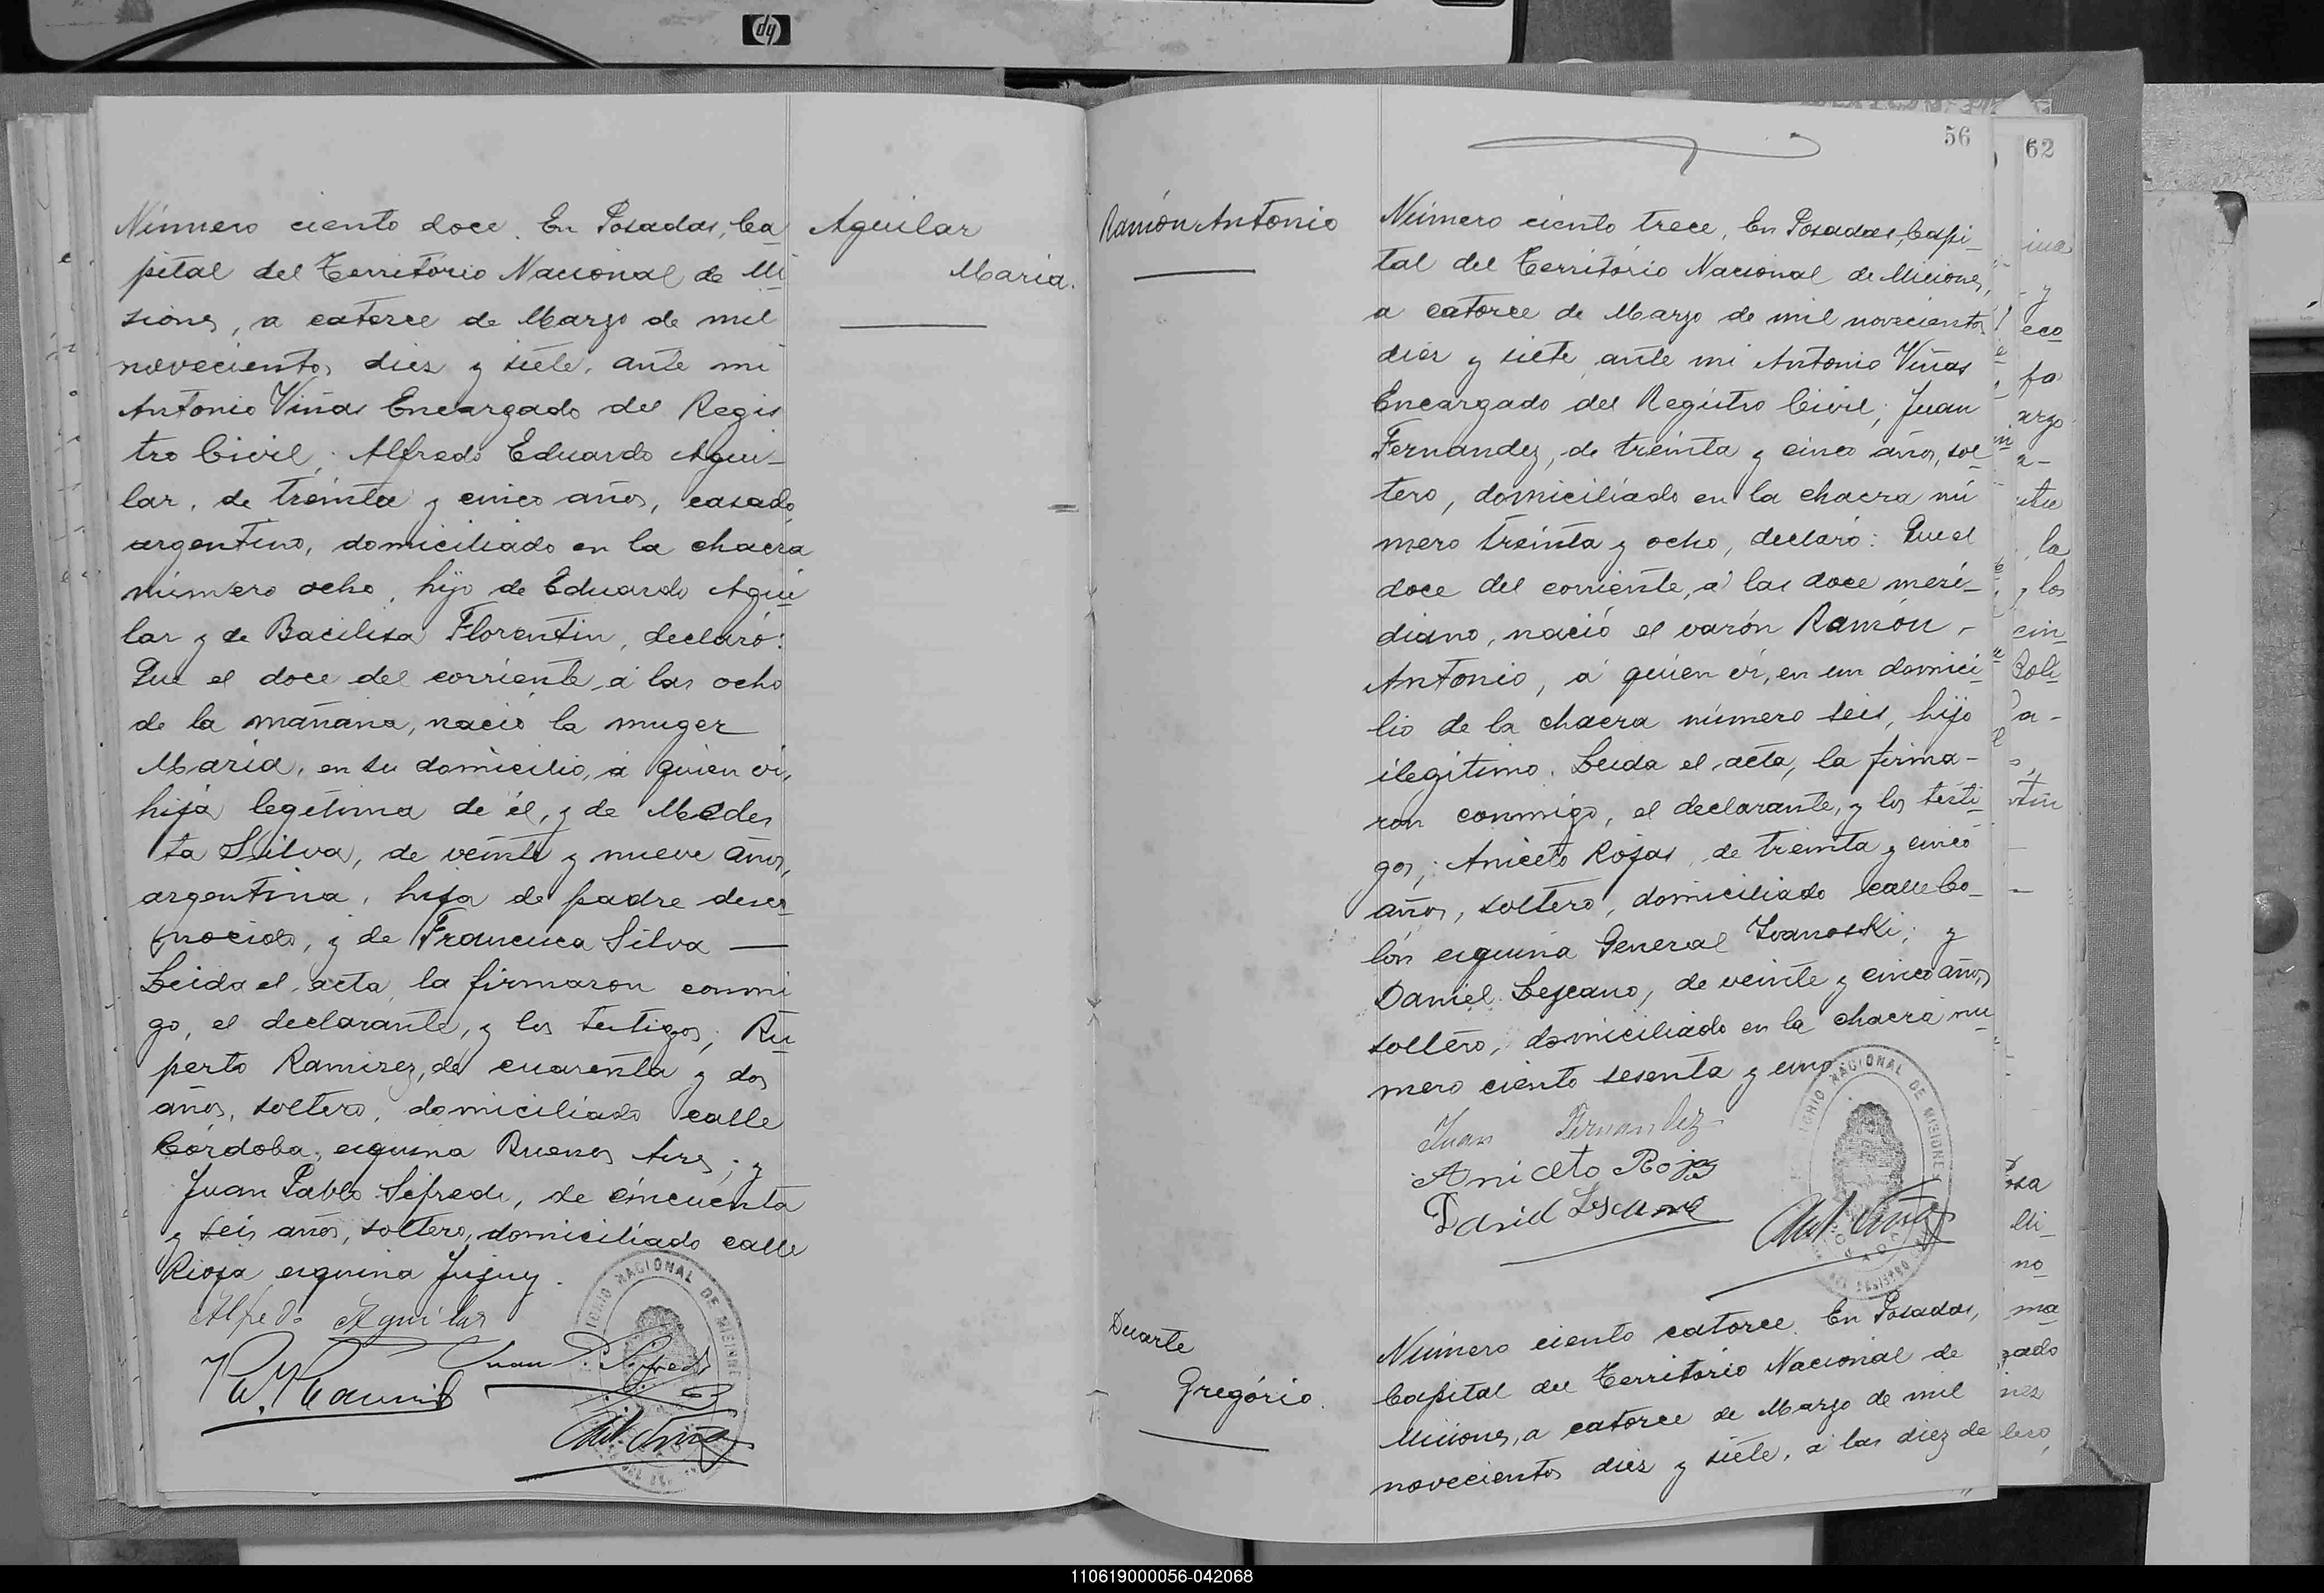 hp
Número ciento doce. En Posadas, Ca
pital del Território Nacional de Mi
siones, a catorce de Marzo de mil
novecientos diez y siete, ante mi
Antonio Viñas Encargado del Regis
tro Civil; Alfredo Eduardo Agui-
lar, de treinta y cinco años, casado,
argentino, domiciliado en la chacra
número ocho, hijo de Eduardo Agui
lar y de Bacilisa Florentin, declaró:
Que el doce del corriente, á las ocho
de la mañana, nació la muger
María, en su domicilio, á quien ví,
hija legítima de él, y de Modes
ta Silva, de veinte y nueve años,
argentina, hija de padre desco
nocido, y de Francisca Silva —
Leida el acta, la firmaron conmi
go, el declarante, y los testigos; Ru
perto Ramirez, de cuarenta y dos
años, soltero, domiciliado calle
Córdoba, esquina Buenos Aires; y
Juan Pablo Sifredi, de cincuenta
y seis años, soltero, domiciliado calle
Rioja esquina Jujuy.
Alfredo Aguilar
Juan P. Sifredi
R. Ramirez
Ant. Viñas
TERRITORIO NACIONAL DE MISIONES
Aguilar
María.
56
Ramón Antonio
Número ciento trece. En Posadas, Capi-
tal del Território Nacional de Misiones,
a catorce de Marzo de mil novecientos
diez y siete, ante mi Antonio Viñas
Encargado del Registro Civil; Juan
Fernandez, de treinta y cinco años, sol-
tero, domiciliado en la chacra nú
mero treinta y ocho, declaró: Que el
doce del corriente, á las doce meri-
diano, nació el varón Ramón -
Antonio, á quien ví, en un domici-
lio de la chacra número seis, hijo
ilegítimo. Leida el acta, la firma-
ron conmigo, el declarante, y los testi
gos; Aniceto Rojas, de treinta y cinco
años, soltero, domiciliado calle Co-
lón esquina General Ivanoski; y
Daniel Lezcano, de veinte y cinco años,
soltero, domiciliado en la chacra nu-
mero ciento sesenta y uno
Juan Fernandez
Aniceto Rojas
Daniel Lescano
Ant. Viñas
TERRITORIO NACIONAL DE MISIONES
Duarte
Gregório.
Número ciento catorce. En Posadas,
Capital del Território Nacional de
Misiones, a catorce de Marzo de mil
novecientos diez y siete, á las diez de
62
eco
fa
argo
a-
la
y los
cin
Roli
a-
osa
Mi
no
ma
gado
nez
lero,
110619000056-042068